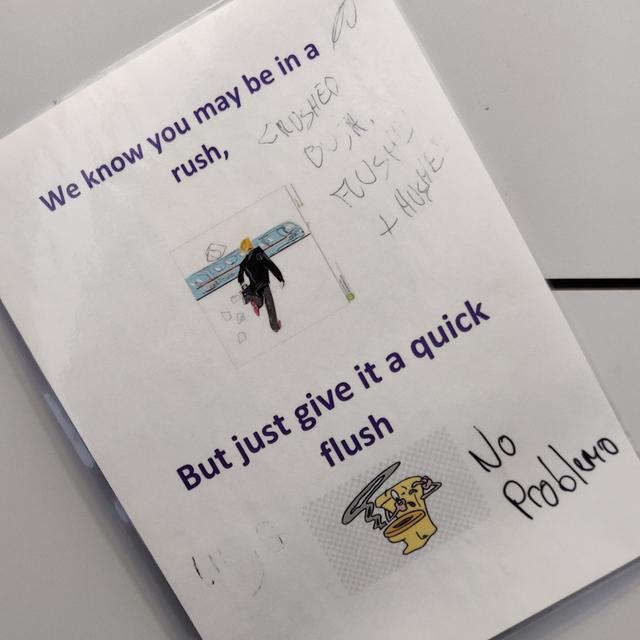 We know you may be in a
rush,
CRUSHED
BUSH,
FLUSHE
+ HUSHE
But just give it a quick
flush
No
Problemo